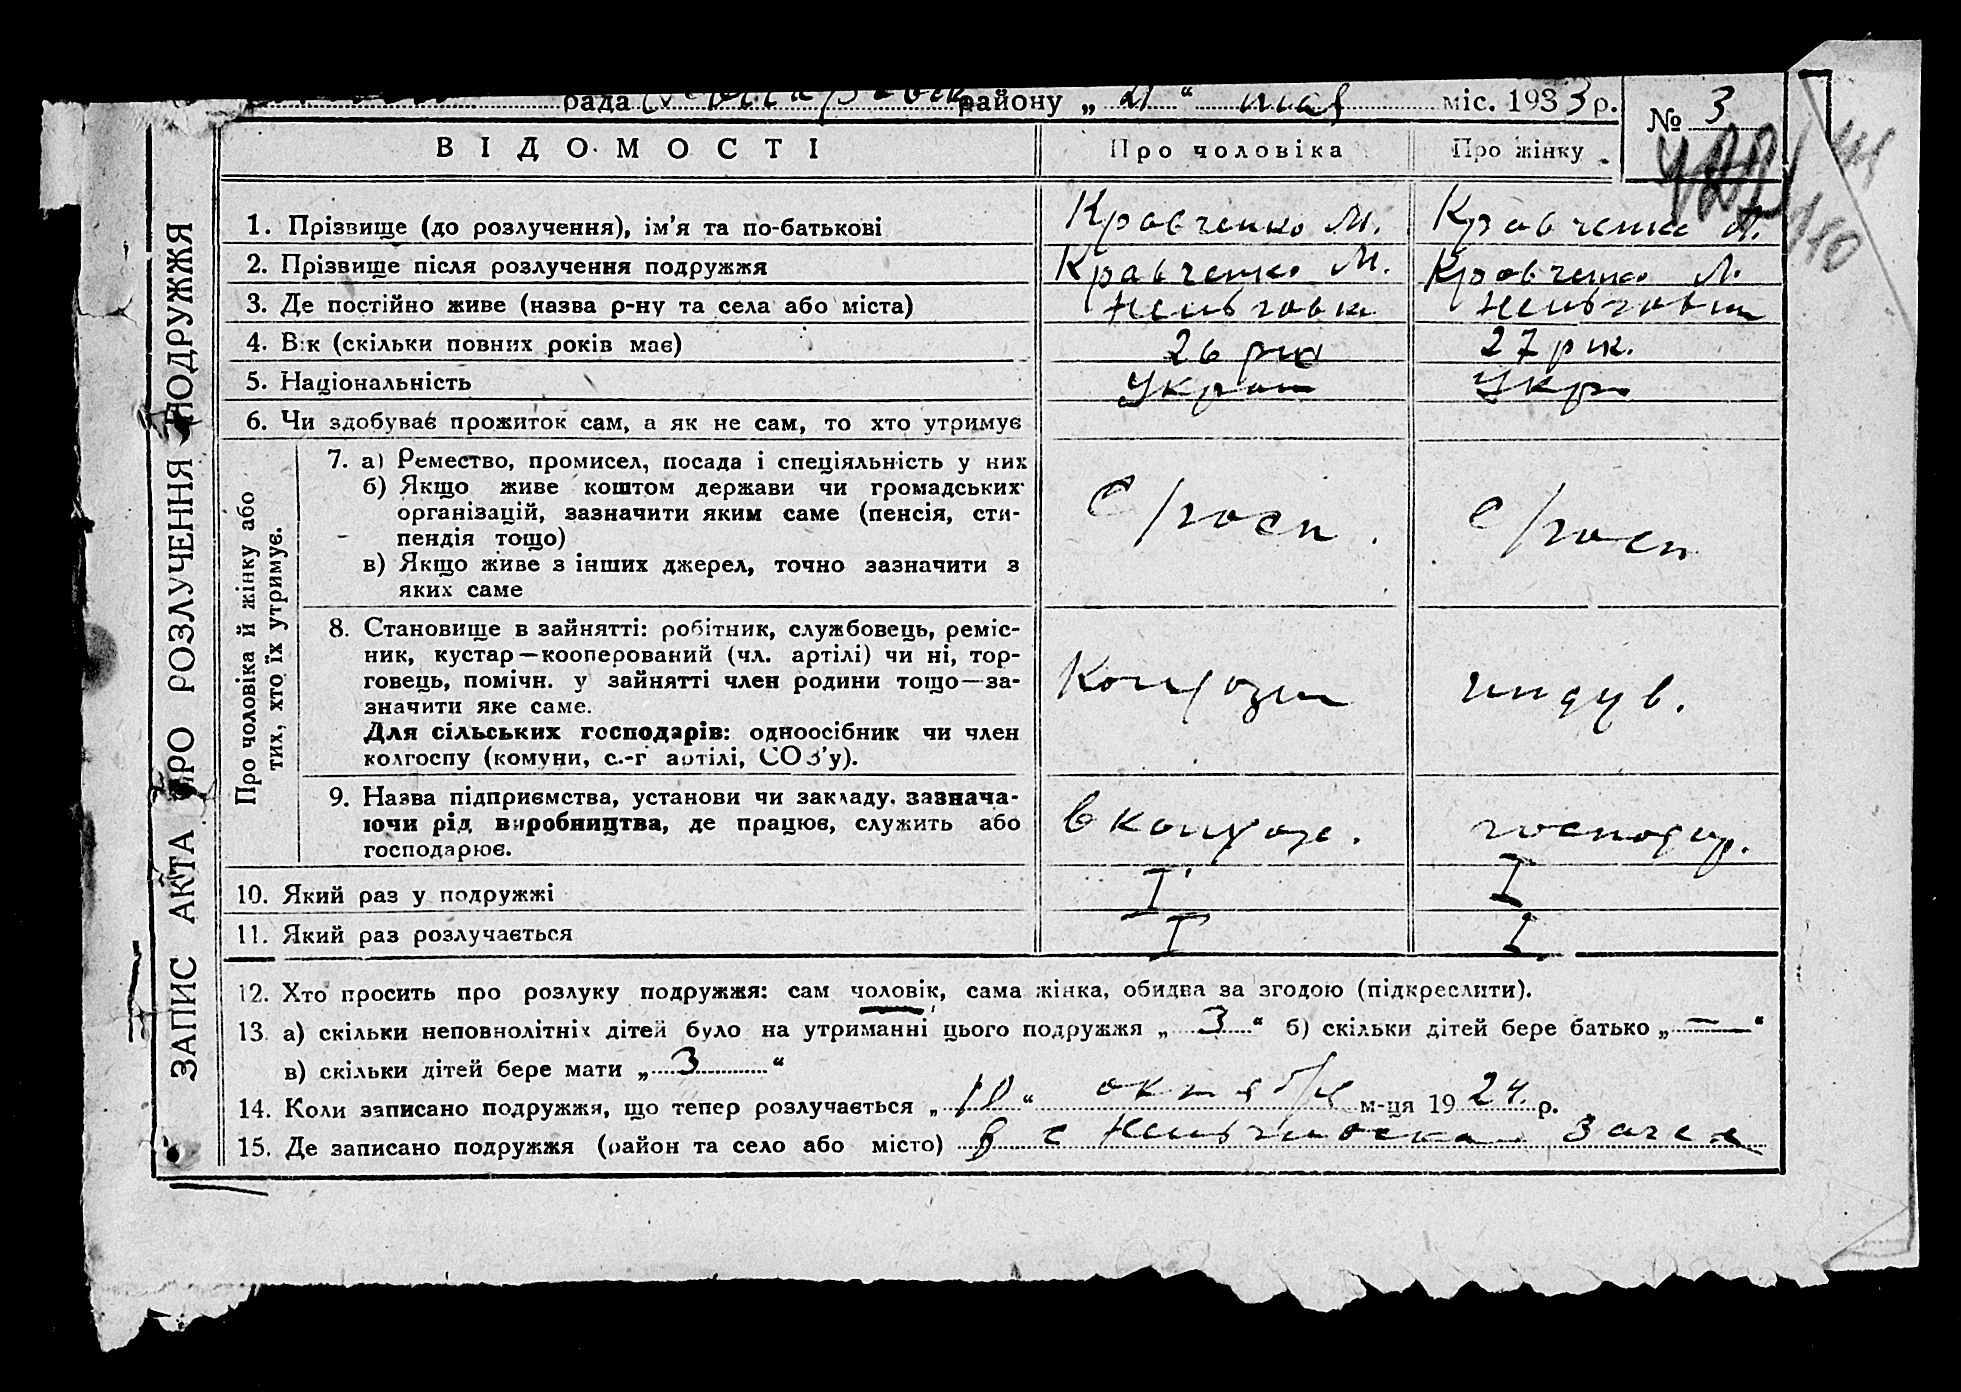 рада району „ 21 “ мая міс. 1933 р.
№ 3
ВІДОМОСТІ
Про чоловіка
Про жінку
ЗАПИС АКТА ПРО РОЗЛУЧЕННЯ ПОДРУЖЖЯ
1. Прізвище (до розлучення), ім’я та по-батькові Кравченко М. Кравченко
2. Прізвище після розлучення подружжя Кравченко М. Кравченко
3. Де постійно живе (назва р-ну та села або міста)
4. Вік (скільки повних років має) 26 27
5. Національність Укр
6. Чи здобуває прожиток сам, а як не сам, то хто утримує
Про чоловіка й жінку або
тих, хто їх утримує.
7. а) Ремество, промисел, посада і спеціяльність у них
б) Якщо живе коштом держави чи громадських
організацій, зазначити яким саме (пенсія, сти-
пендія тощо)
в) Якщо живе з інших джерел, точно зазначити з
яких саме
С/госп. с/госп
8. Становище в зайнятті: робітник, службовець, реміс-
ник, кустар—кооперований (чл. артілі) чи ні, тор-
говець, помічн. у зайнятті член родини тощо—за-
значити яке саме.
Для сільських господарів: одноосібник чи член
колгоспу (комуни, с.-г артілі, СОЗ’у).
индув.
9. Назва підприємства, установи чи закладу, зазнача-
ючи рід виробництва, де працює, служить або
господарює.
в колхозе. господар.
10. Який раз у подружжі I I
11. Який раз розлучається I I
12. Хто просить про розлуку подружжя: сам чоловік, сама жінка, обидва за згодою (підкреслити).
13. а) скільки неповнолітніх дітей було на утриманні цього подружжя „ 3 “ б) скільки дітей бере батько „ — “
в) скільки дітей бере мати „ 3 “
14. Коли записано подружжя, що тепер розлучається „ 10 “ октября м-ця 1924 р.
15. Де записано подружжя (район та село або місто) в с